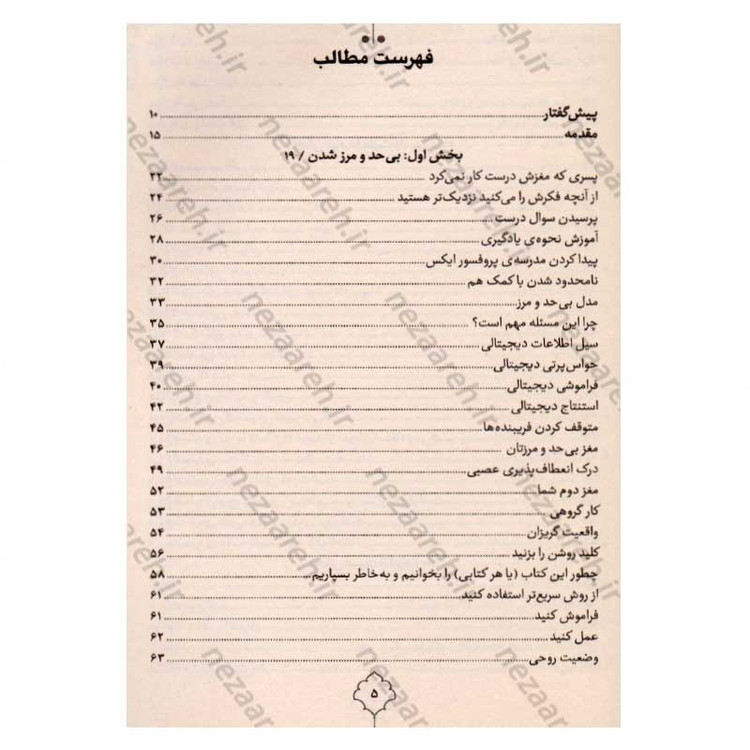 فهرست مطالب
پیش‌گفتار ۱۰
مقدمه ۱۵
بخش اول: بی‌حد و مرز شدن / ۱۹
پسری که مغزش درست کار نمی‌کرد ۲۲
از آنچه فکرش را می‌کنید نزدیک‌تر هستید ۲۴
پرسیدن سوال درست ۲۶
آموزش نحوه‌ی یادگیری ۲۸
پیدا کردن مدرسه‌ی پروفسور ایکس ۳۰
نامحدود شدن با کمک هم ۳۲
مدل بی‌حد و مرز ۳۳
چرا این مسئله مهم است؟ ۳۵
سیل اطلاعات دیجیتالی ۳۷
حواس‌پرتی دیجیتالی ۳۹
فراموشی دیجیتالی ۴۰
استنتاج دیجیتالی ۴۲
متوقف کردن فریبنده‌ها ۴۵
مغز بی‌حد و مرزتان ۴۶
درک انعطاف‌پذیری عصبی ۴۹
مغز دوم شما ۵۲
کار گروهی ۵۳
واقعیت گریزان ۵۴
کلید روشن را بزنید ۵۶
چطور این کتاب (یا هر کتابی) را بخوانیم و به خاطر بسپاریم ۵۸
از روش سریع‌تر استفاده کنید ۶۱
فراموش کنید ۶۱
عمل کنید ۶۲
وضعیت روحی ۶۳
۵
nezaareh.ir